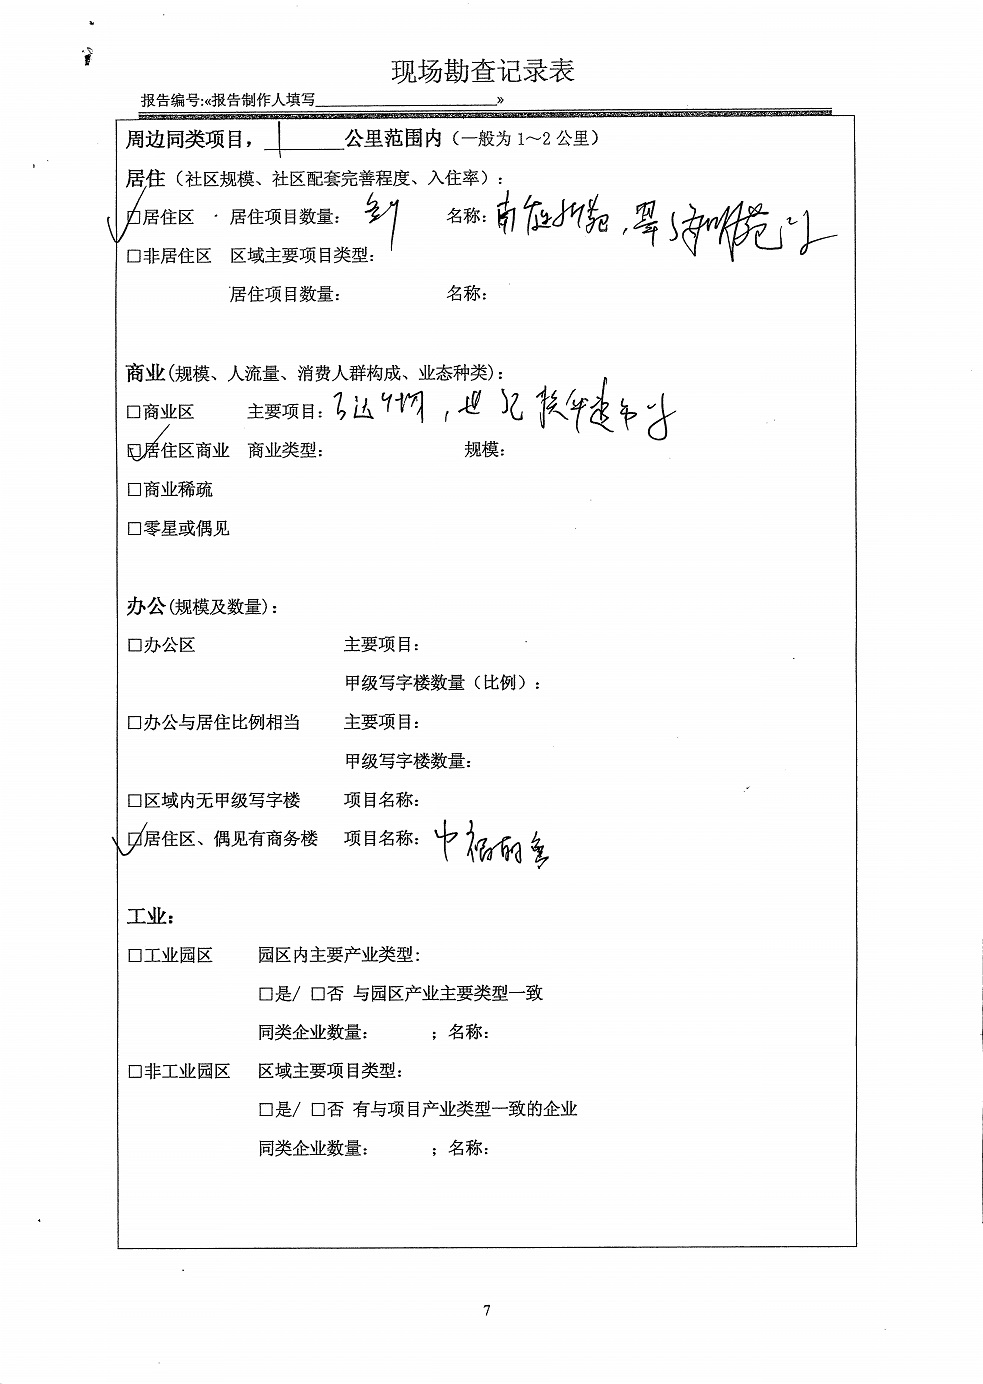 现场勘查记录表
报告编号:«报告制作人填写»
周边同类项目，1公里范围内（一般为1～2公里）
居住（社区规模、社区配套完善程度、入住率）:
□居住区 居住项目数量: 多个 名称: 南 新苑,翠 苑
□非居住区 区域主要项目类型:
居住项目数量: 名称:
商业(规模、人流量、消费人群构成、业态种类):
□商业区 主要项目: 万达广场,世纪联华超市
□居住区商业 商业类型: 规模:
□商业稀疏
□零星或偶见
办公(规模及数量):
□办公区 主要项目:
甲级写字楼数量（比例）:
□办公与居住比例相当 主要项目:
甲级写字楼数量:
□区域内无甲级写字楼 项目名称:
□居住区、偶见有商务楼 项目名称: 中
工业:
□工业园区 园区内主要产业类型:
□是/ □否 与园区产业主要类型一致
同类企业数量: ；名称:
□非工业园区 区域主要项目类型:
□是/ □否 有与项目产业类型一致的企业
同类企业数量: ；名称:
7